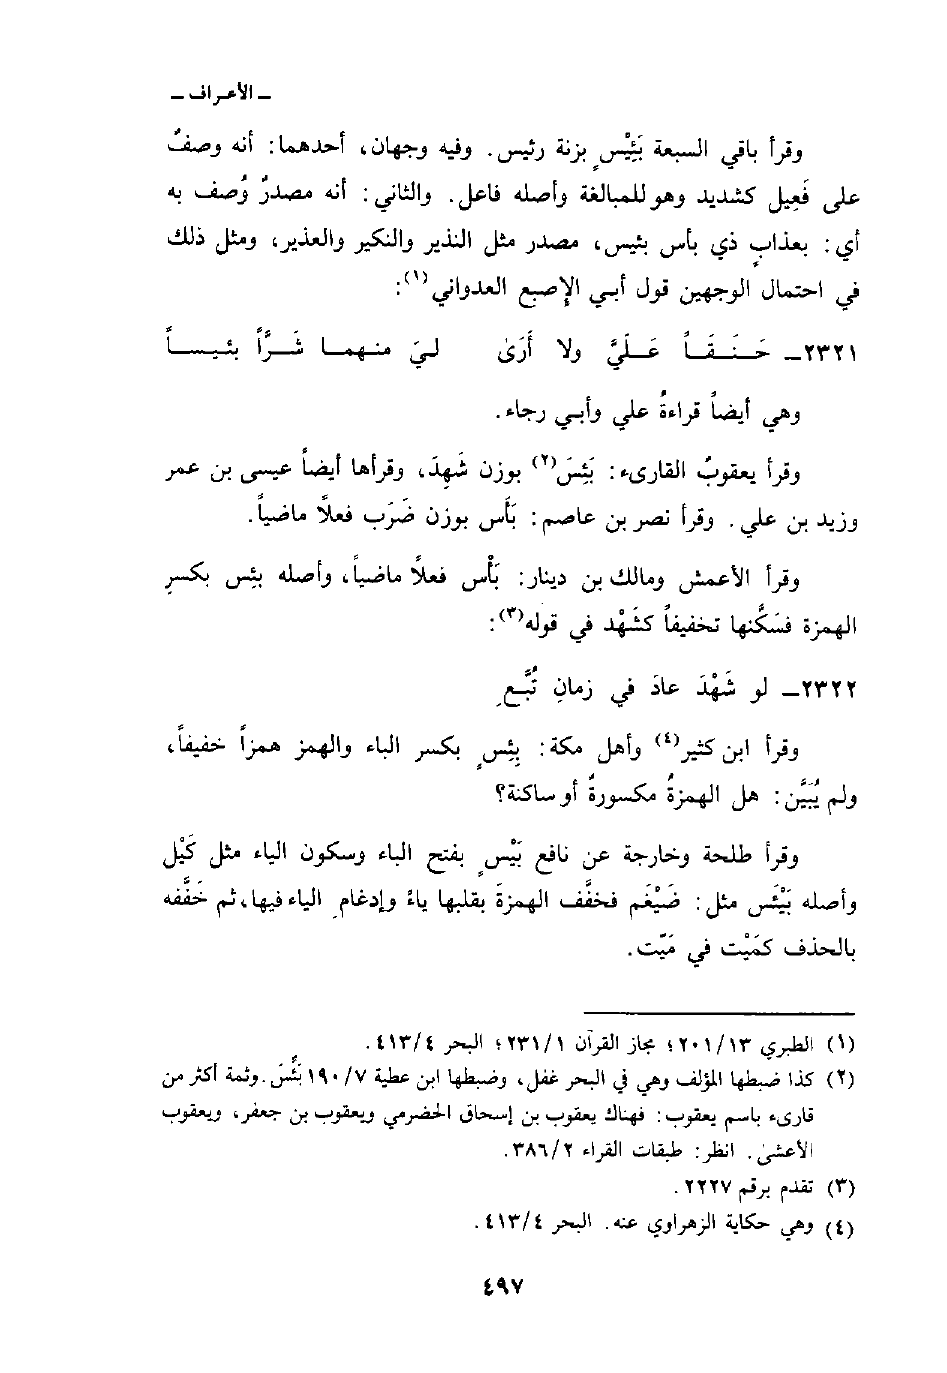 ـ الأعراف ـ
وقرأ باقي السبعة بَئِيْسٍ بزنة رئيس. وفيه وجهان، أحدهما: أنه وصفٌ
على فَعِيل كشديد وهو للمبالغة وأصله فاعل. والثاني: أنه مصدرٌ وُصف به
أي: بعذابٍ ذي بأس بئيس، مصدر مثل النذير والنكير والعذير، ومثل ذلك
في احتمال الوجهين قول أبي الإصبع العدواني(١):
٢٣٢١ـ حَنَقَاً عَلَيَّ ولا أَرَىٰ ليَ منهما شَرَّاً بئيساً
وهي أيضاً قراءةُ علي وأبي رجاء.
وقرأ يعقوبُ القارىء: بَئِسَ(٢) بوزن شَهِدَ، وقرأها أيضاً عيسى بن عمر
وزيد بن علي. وقرأ نصر بن عاصم: بَأَس بوزن ضَرَب فعلاً ماضياً.
وقرأ الأعمش ومالك بن دينار: بَأْس فعلاً ماضياً، وأصله بئِس بكسرِ
الهمزة فسَكَّنها تخفيفاً كشَهْد في قوله(٣):
٢٣٢٢ـ لو شَهْدَ عادَ في زمانِ تُبَّعِ
وقرأ ابن كثير(٤) وأهل مكة: بِئِسٍ بكسر الباء والهمز همزاً خفيفاً،
ولم يُبَيَّن: هل الهمزةُ مكسورةٌ أو ساكنة؟
وقرأ طلحة وخارجة عن نافع بَيْسٍ بفتح الباء وسكون الياء مثل كَيْل
وأصله بَيْئَس مثل: ضَيْغَم فخفَّف الهمزةَ بقلبها ياءً وإدغامِ الياء فيها، ثم خَفَّفه
بالحذف كمَيْت في مَيّت.
(١) الطبري ٢٠١/١٣؛ مجاز القرآن ٢٣١/١؛ البحر ٤١٣/٤.
(٢) كذا ضبطها المؤلف وهي في البحر غفل، وضبطها ابن عطية ١٩٠/٧ بَئَّسَ. وثمة أكثر من
قارىء باسم يعقوب: فهناك يعقوب بن إسحاق الحضرمي ويعقوب بن جعفر، ويعقوب
الأعشىٰ. انظر: طبقات القراء ٣٨٦/٢.
(٣) تقدم برقم ٢٢٢٧.
(٤) وهي حكاية الزهراوي عنه. البحر ٤١٣/٤.
٤٩٧